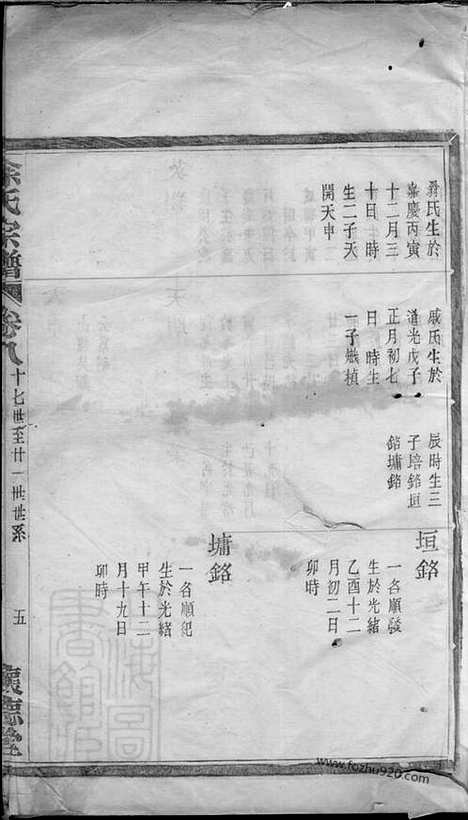 氏生於
嘉慶丙寅
十二月三
十日 時
生二子天
開天申
戚氏生於
道光戊子
正月初七
日 時生
一子熾楨
辰時生三
子培銘垣
銘墉銘
垣銘
一名順發
生於光緒
乙酉十二
月初二日
卯時
墉銘
一名順紀
生於光緒
甲午十二
月十九日
卯時
氏宗譜
卷八
十七世至廿一世世系
五
www.fozhu920.com